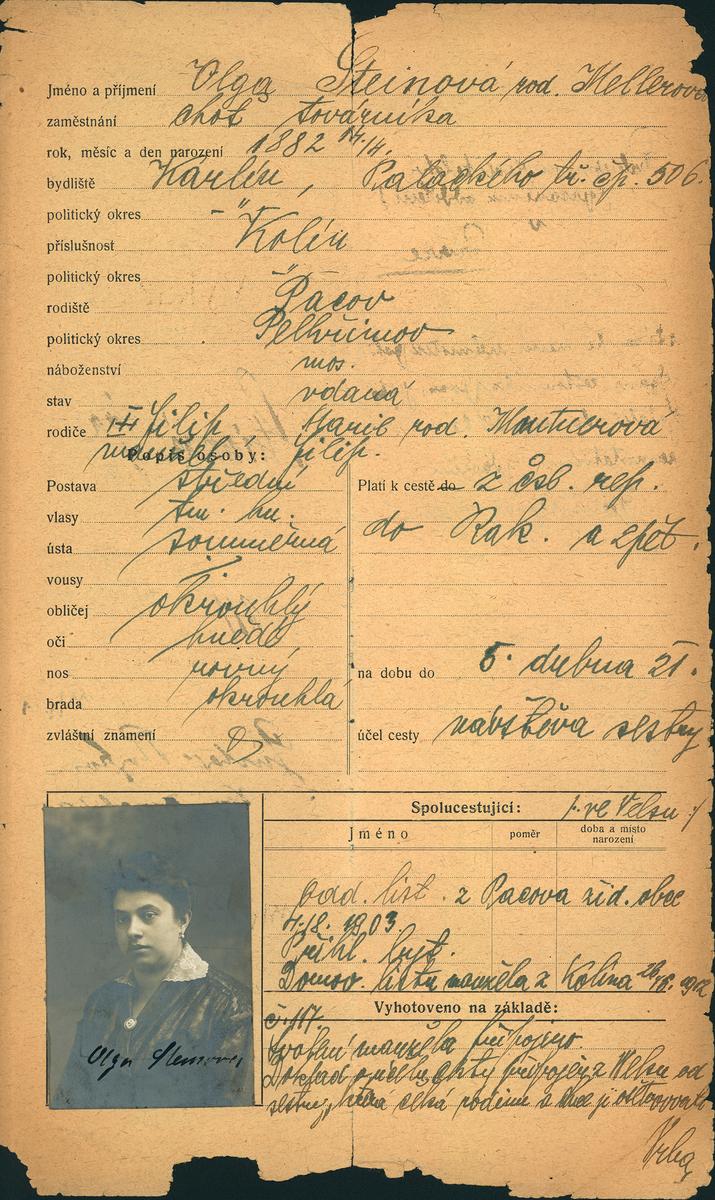 Jméno a příjmení Olga Steinová rod. Hellerová
zaměstnání choť továrníka
rok, měsíc a den narození 1882 14/4.
bydliště Karlín, Palackého tř. čp. 506.
politický okres - " -
příslušnost Kolín
politický okres - " -
rodiště Pacov
politický okres Pelhřimov
náboženství mos.
stav vdaná
rodiče Filip, Marie rod.
manžel: Filip.
Popis osoby:
Postava střední
vlasy tm. hn.
ústa souměrná
vousy
obličej okrouhlý
oči hnědé
nos rovný
brada okrouhlá
zvláštní znamení
Platí k cestě do z čsl. rep.
do Rak. a zpět.
na dobu do 5. dubna 21.
účel cesty návštěva sestry
Spolucestující: /: ve Velsu :/
Jméno poměr doba a místo narození
Odd. list. z Pacova žid. obce
4./8. 1903
Přihl. list.
Domov. listu manžela z Kolína 1912
Vyhotoveno na základě:
č. 117.
Svolení manžela připojeno.
Doklad o účelu cesty připojen z Welsu od
sestry, celá rodina a ji ošetřovala
Vrba
Olga Steinová